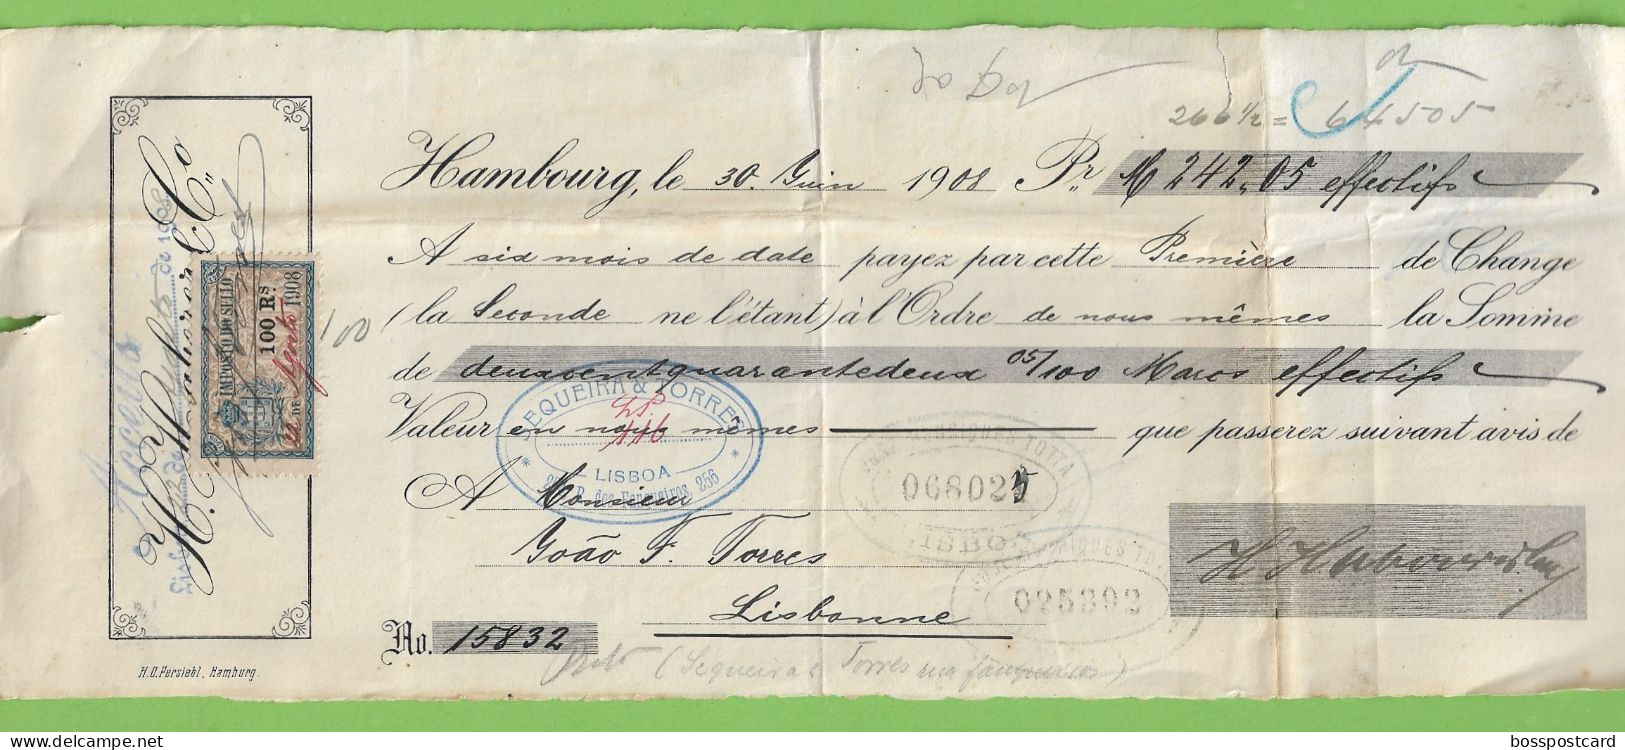 266 1/2 = 64505
Hambourg, le 30. Juin 1908 Pr. M 242,05 effectifs
A six mois de date payez par cette Première de Change
(la Seconde ne l'étant) à l'Ordre de nous mêmes la Somme
de deuxcentquarantedeux 05/100 Marcs effectifs
Valeur en nous mêmes que passerez suivant avis de
A Monsieur
João F. Torres
Lisbonne
No. 15832
(Sequeira & Torres rua Fanqueiros)
SEQUEIRA & TORRES
116
LISBOA
R. dos Fanqueiros, 256
TOTTA
068025
LISBOA
025392
IMPOSTO DO SELLO
100 Rs
DE Agosto 1908
100
Acceite
de 1908
H. & Co
H.O. Persiehl, Hamburg.
bosspostcard
www.delcampe.net